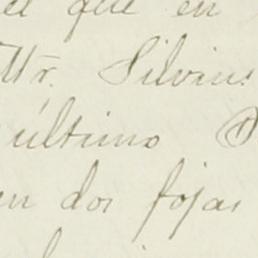 que en
Mr. Silvius
último
en dos fojas